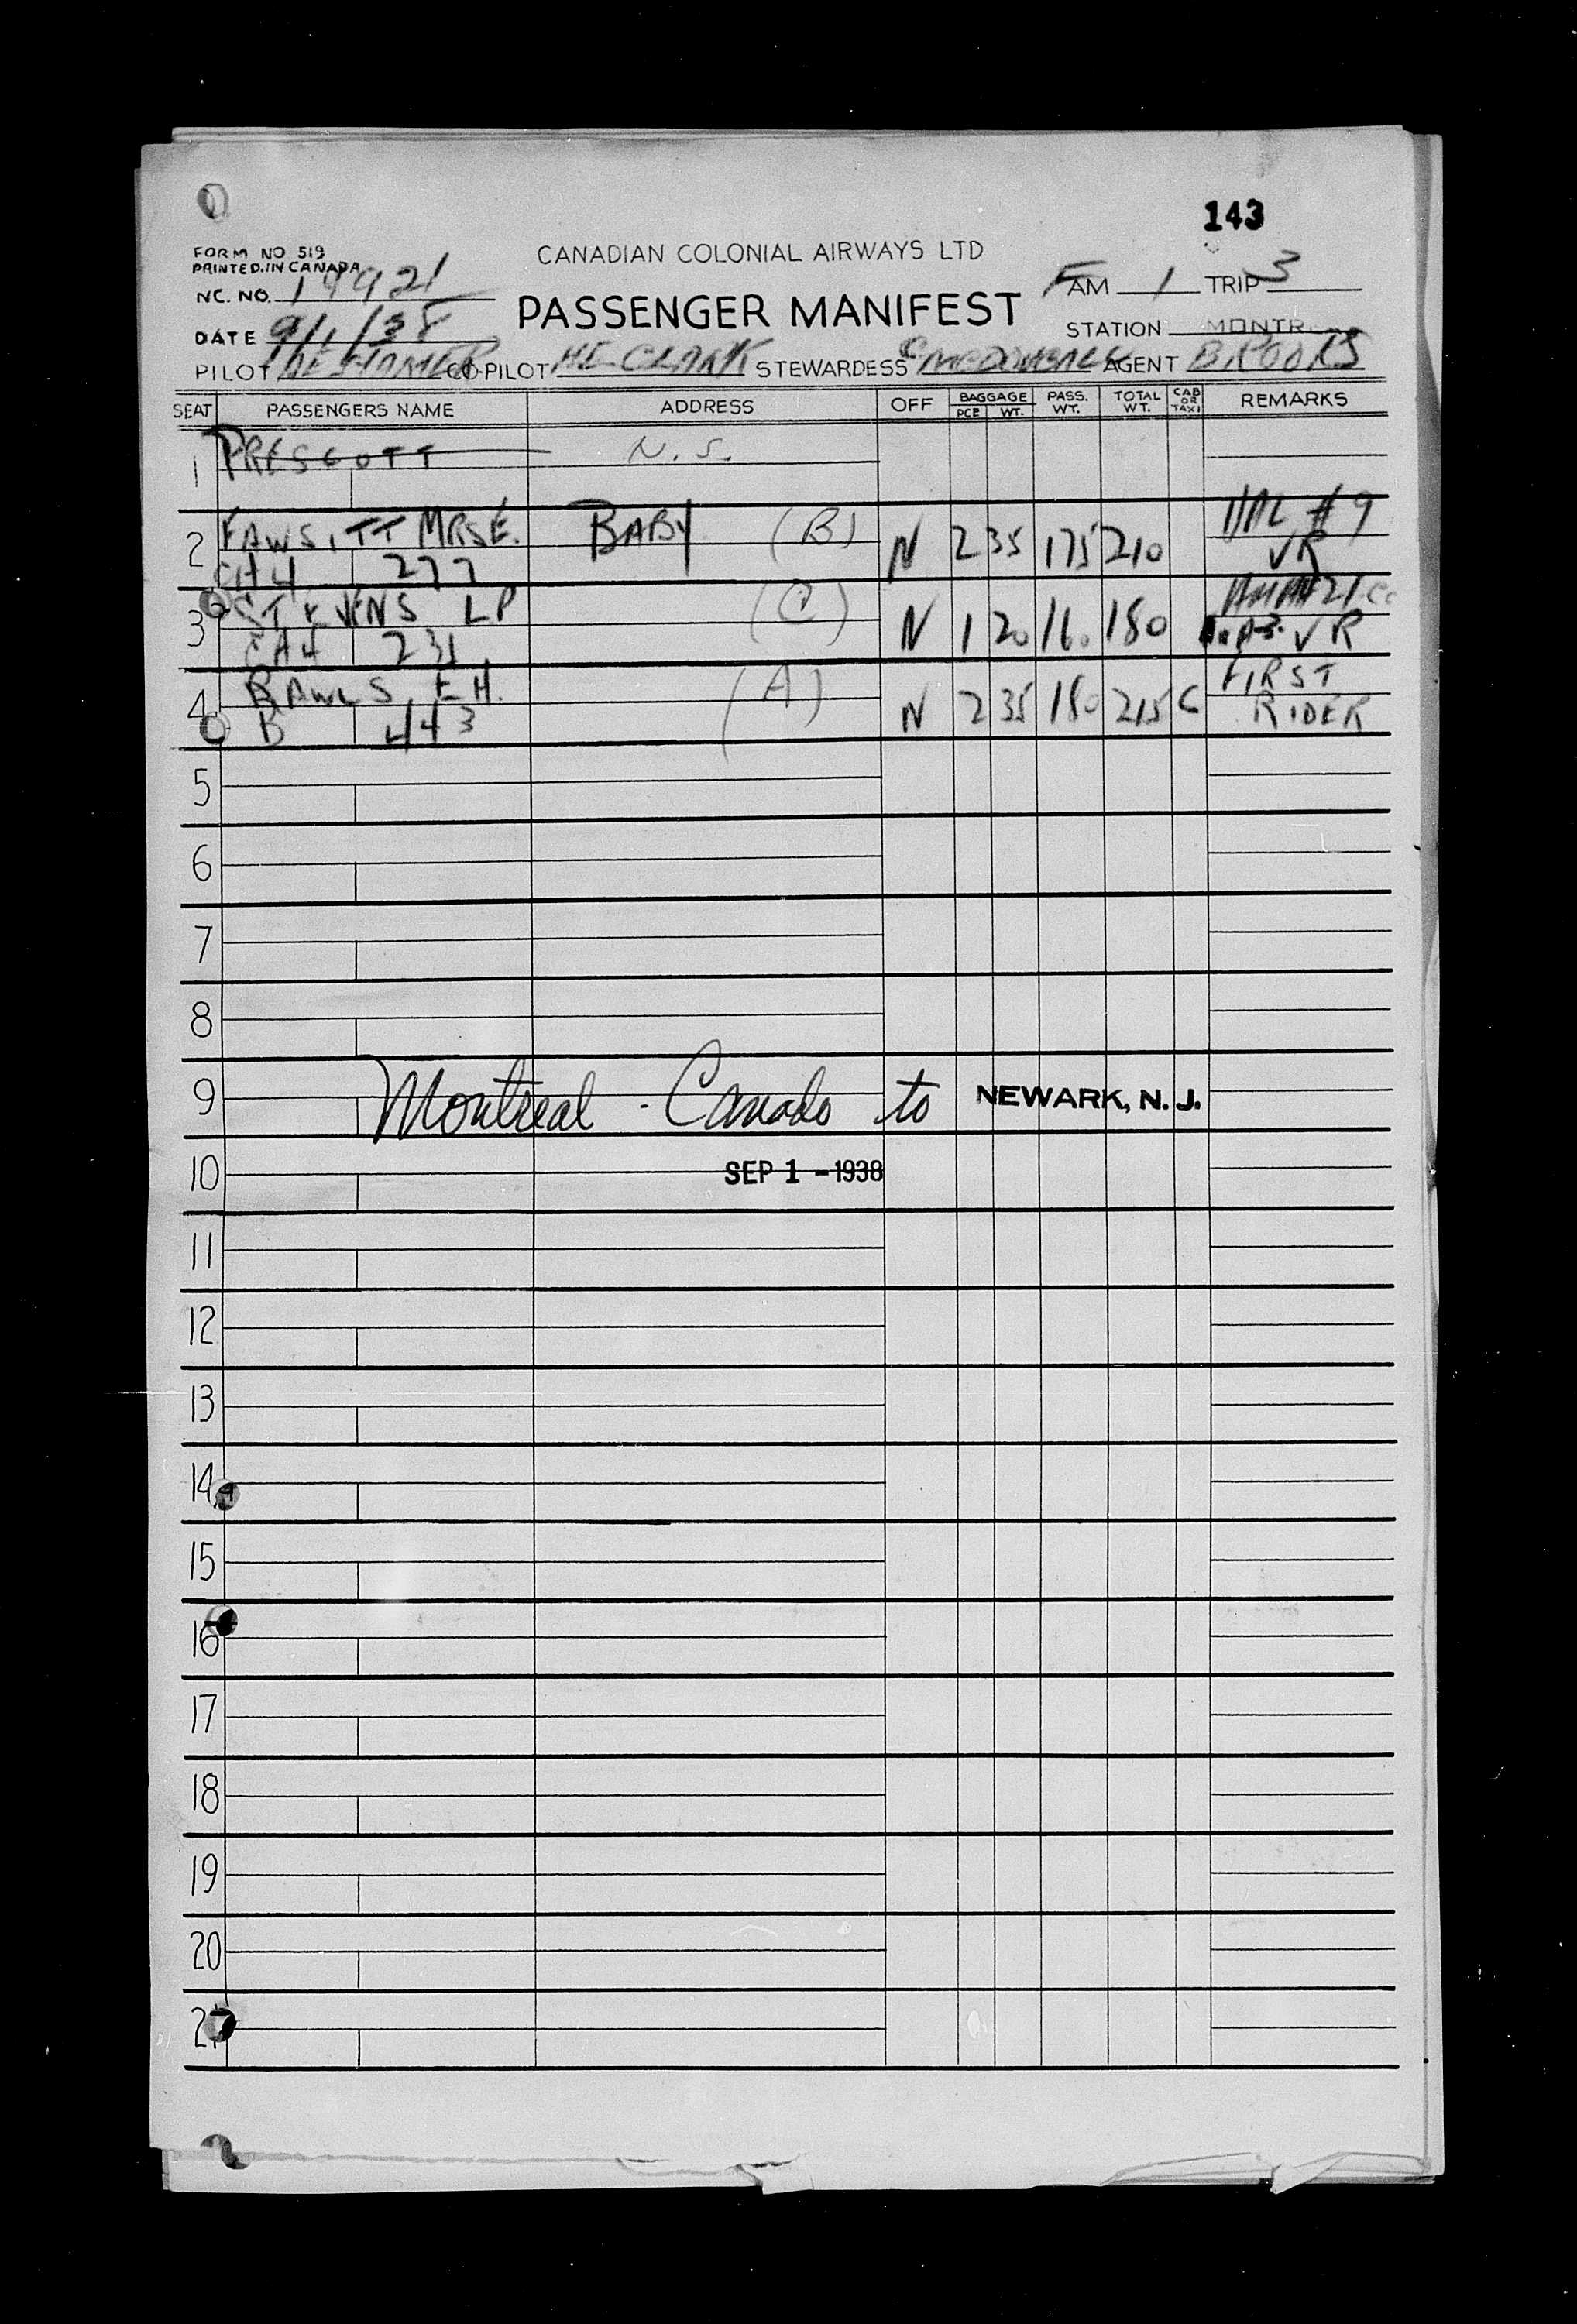 143
FORM NO 519
PRINTED IN CANADA
CANADIAN COLONIAL AIRWAYS LTD
NC. NO. 14921
PASSENGER MANIFEST
FAM 1 TRIP 3
DATE 9/1/38
STATION MONTR
PILOT CO-PILOT HE CLARK STEWARDESS AGENT BROOKS
SEAT PASSENGERS NAME ADDRESS OFF BAGGAGE PCE WT. PASS. WT. TOTAL WT. CAB OR TAXI REMARKS
1 PRESCOTT N.S.
2 FAWSITT MRS E. BABY (B) N 2 35 175 210 #9
CA4 277 VR
3 STEVENS LP (C) N 1 20 160 180
CA4 231 VR
4 RAWLS EH. (A) N 2 35 180 215 C FIRST
B 443 RIDER
5
6
7
8
9 Montreal - Canada to NEWARK, N. J.
10 SEP 1 - 1938
11
12
13
14
15
16
17
18
19
20
21